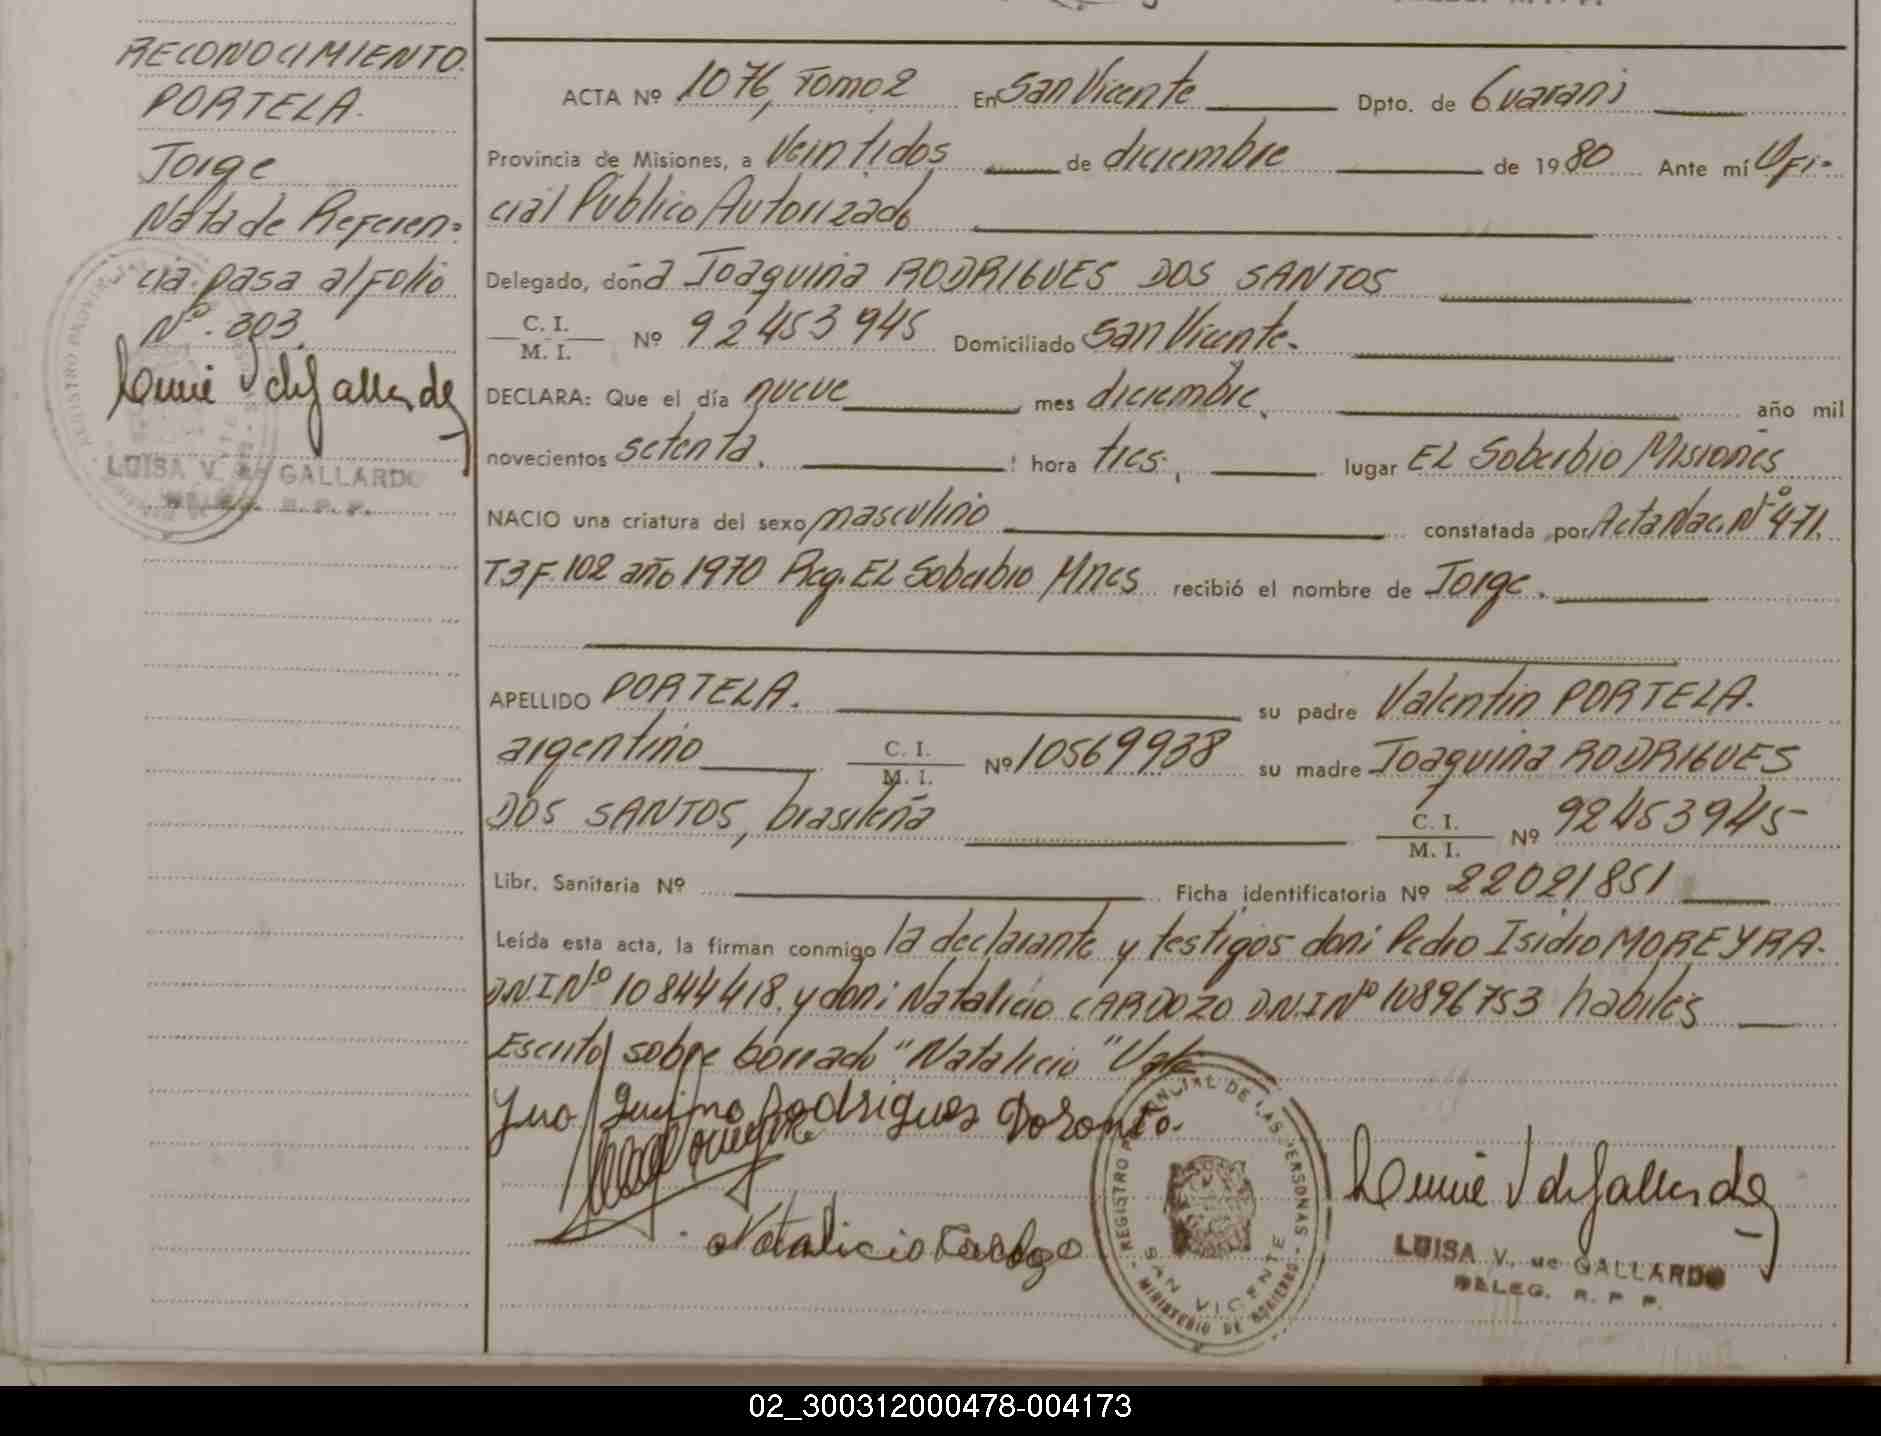 RECONOCIMIENTO.
PORTELA.
Jorge
Nota de Referen-
cia pasa al folio
Nº. 303.
LUISA V. de GALLARDO
DELEG. R. P. P.
ACTA Nº 1076, Tomo 2 En San Vicente Dpto. de Guaraní
Provincia de Misiones, a Veintidos de diciembre de 1980 Ante mí Ofi-
cial Público Autorizado
Delegado, doña Joaquina RODRIGUES DOS SANTOS
C. I. / M. I. Nº 92453945 Domiciliado San Vicente.
DECLARA: Que el día nueve mes diciembre, año mil
novecientos setenta, hora tres, lugar EL Soberbio Misiones
NACIO una criatura del sexo masculino constatada por Acta Nac. Nº 471.
T3F. 102 año 1970 Reg. EL Soberbio Mnes recibió el nombre de Jorge.
APELLIDO PORTELA. su padre Valentin PORTELA.
argentino C. I. / M. I. Nº 10569938 su madre Joaquina RODRIGUES
DOS SANTOS, brasileña C. I. / M. I. Nº 92453945
Libr. Sanitaria Nº Ficha identificatoria Nº 22021851
Leída esta acta, la firman conmigo la declarante y testigos don: Pedro Isidro MOREYRA.
D.N.I Nº 10844418. y don: Natalicio CARDOZO D.N.I Nº 10896753 habiles
Escrito sobre borrado "Natalicio" Vale
Rodrigues
Natalicio Cardozo
REGISTRO PROVINCIAL DE LAS PERSONAS
SAN VICENTE
MINISTERIO DE GOBIERNO
LUISA V. de GALLARDO
DELEG. R. P. P.
02_300312000478-004173